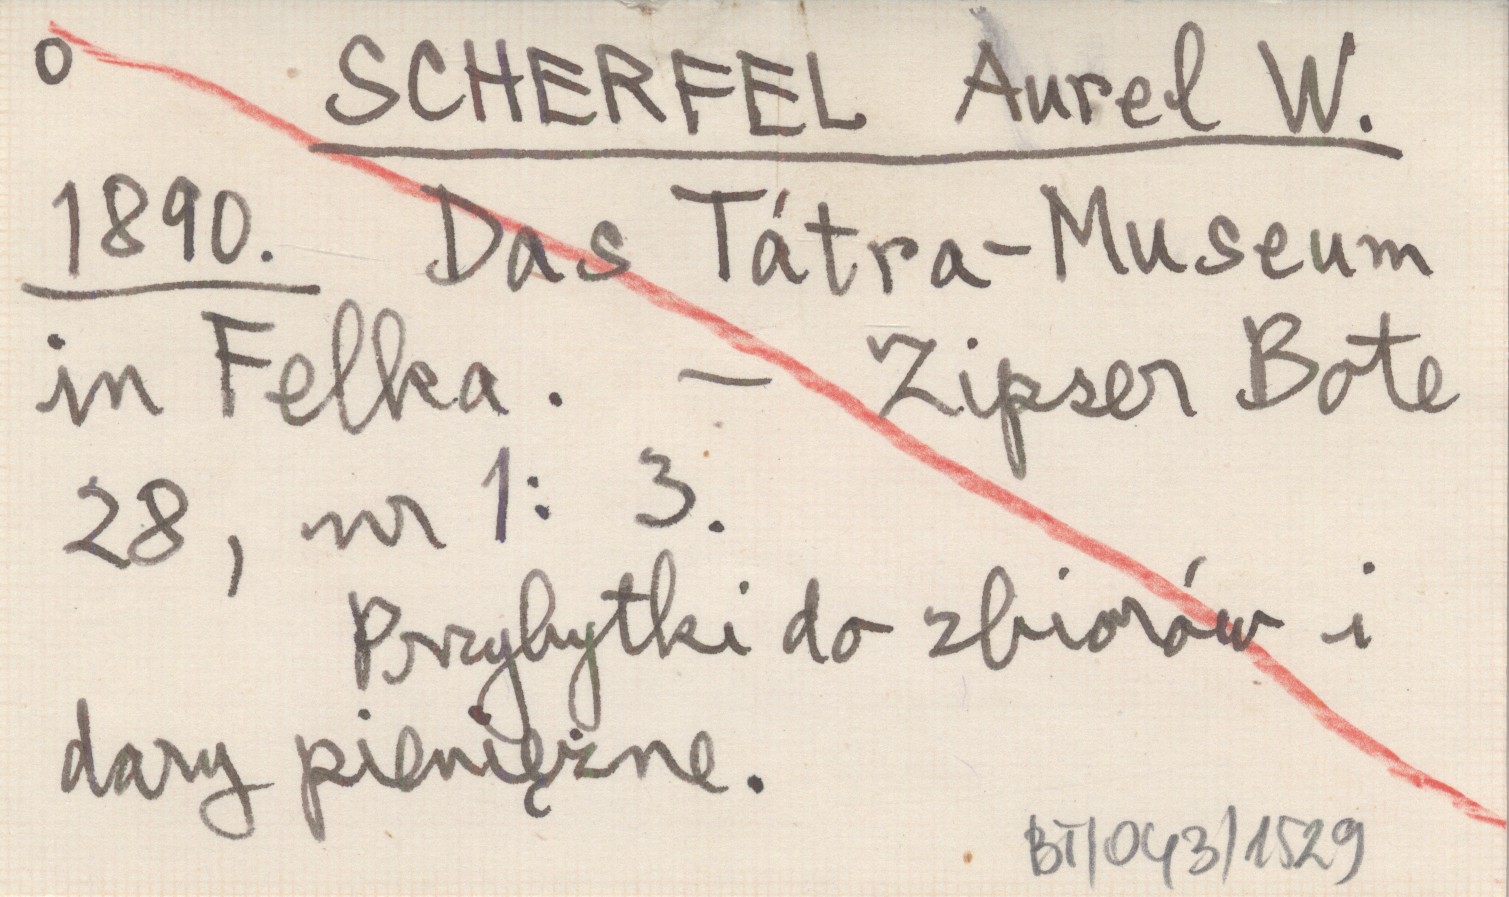 o SCHERFEL Aurel W.
1890. Das Tátra-Museum
in Felka. — Zipser Bote
28, nr 1: 3.
Przybytki do zbiorów i
dary pieniężne.
BT/043/1529